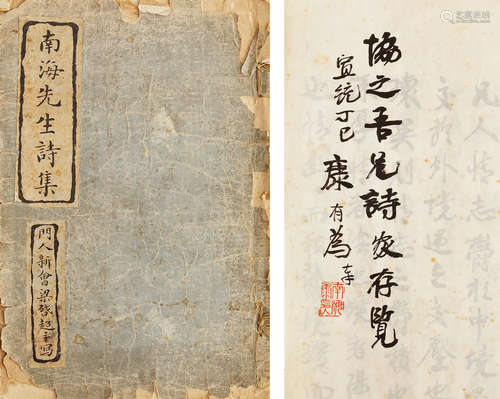 南海先生詩集
門人新會梁啓超手寫
協之吾兄詩家存覽
宣統丁巳
康有為奉